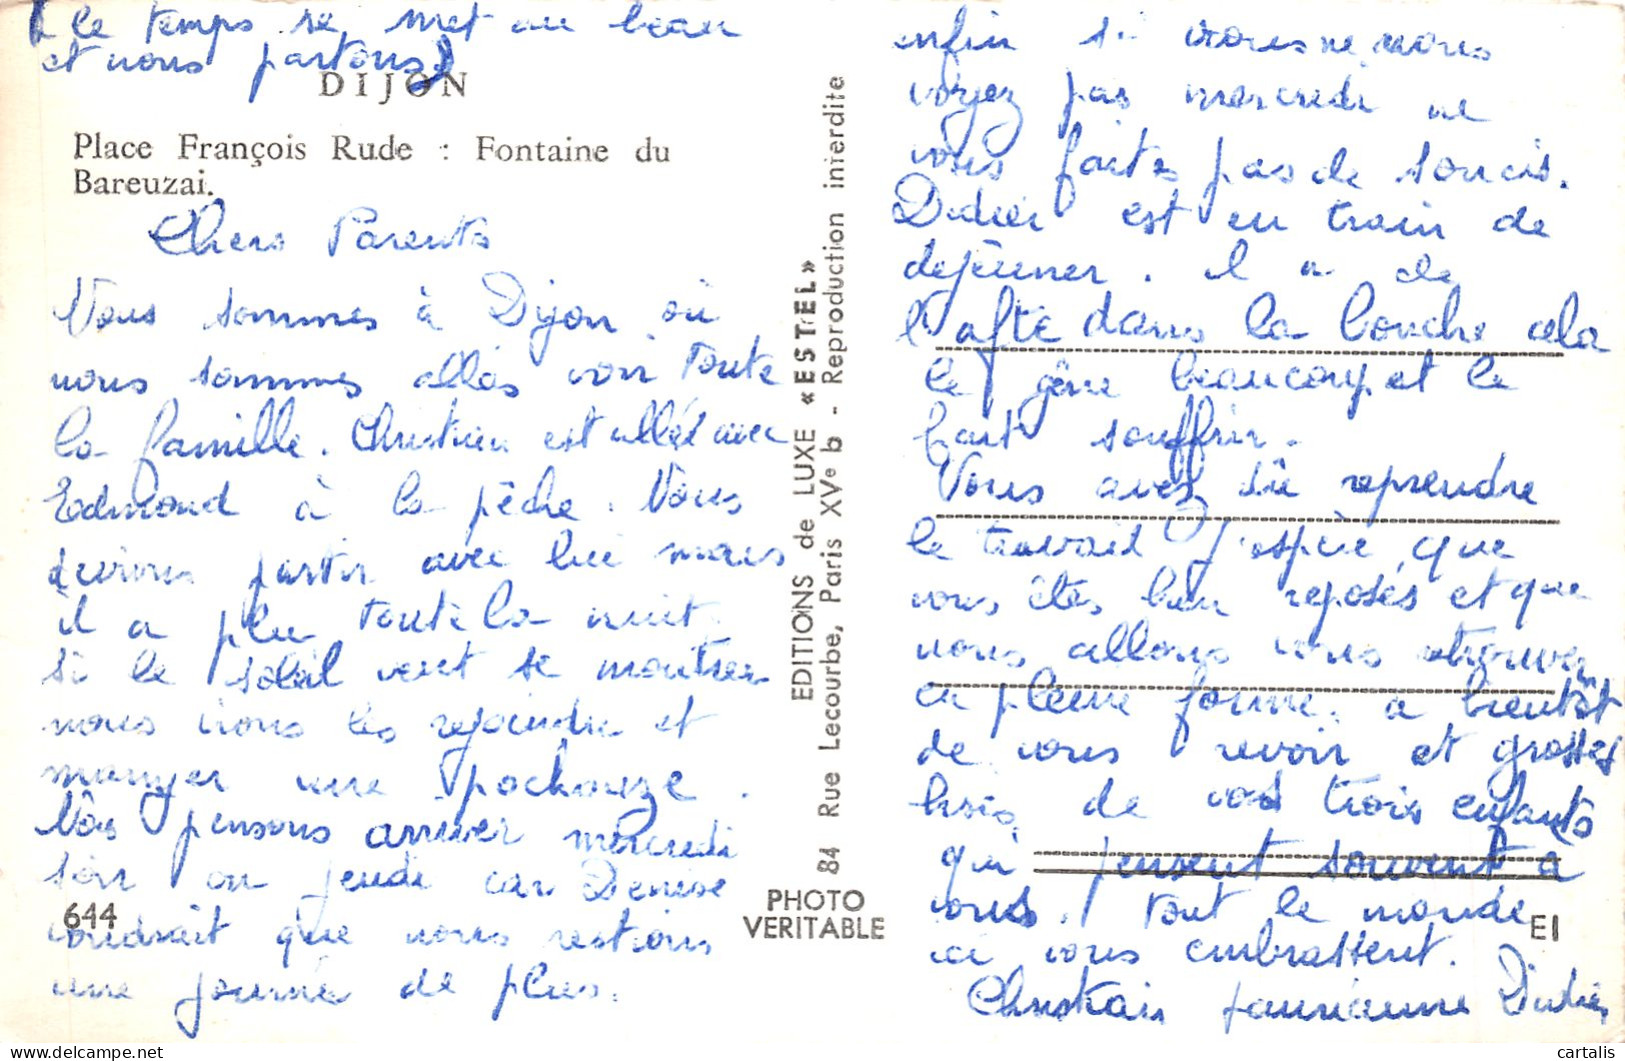 (le temps se met au beau
et nous partons)
DIJON
Place François Rude : Fontaine du
Bareuzai.
Chers Parents
Nous sommes à Dijon où
nous sommes allés voir toute
la famille. Christian est allé avec
Edmond à la pêche. Nous
devions partir avec lui mais
il a plu toute la nuit
si le soleil veut se montrer
nous irons les rejoindre et
manger une pochouze.
Nous pensons arriver mercredi
soir ou jeudi car Denise
voudrait que nous restions
une journée de plus.
644
EDITIONS de LUXE « ESTEL »
84 Rue Lecourbe, Paris XVe b - Reproduction interdite
PHOTO
VERITABLE
enfin si vous ne nous
voyez pas mercredi ne
vous faites pas de soucis.
Didier est en train de
dejeuner. il a de
l'afte dans la bouche cela
le gêne beaucoup et le
fait souffrir.
Vous avez dû reprendre
le travail j'espère que
vous êtes bien reposés et que
nous allons vous retrouver
en pleine forme. a bientôt
de vous revoir et grosses
bises de vos trois enfants
qui pensent souvent à
vous. Tout le monde
ici vous embrassent.
EI
Christian Didier